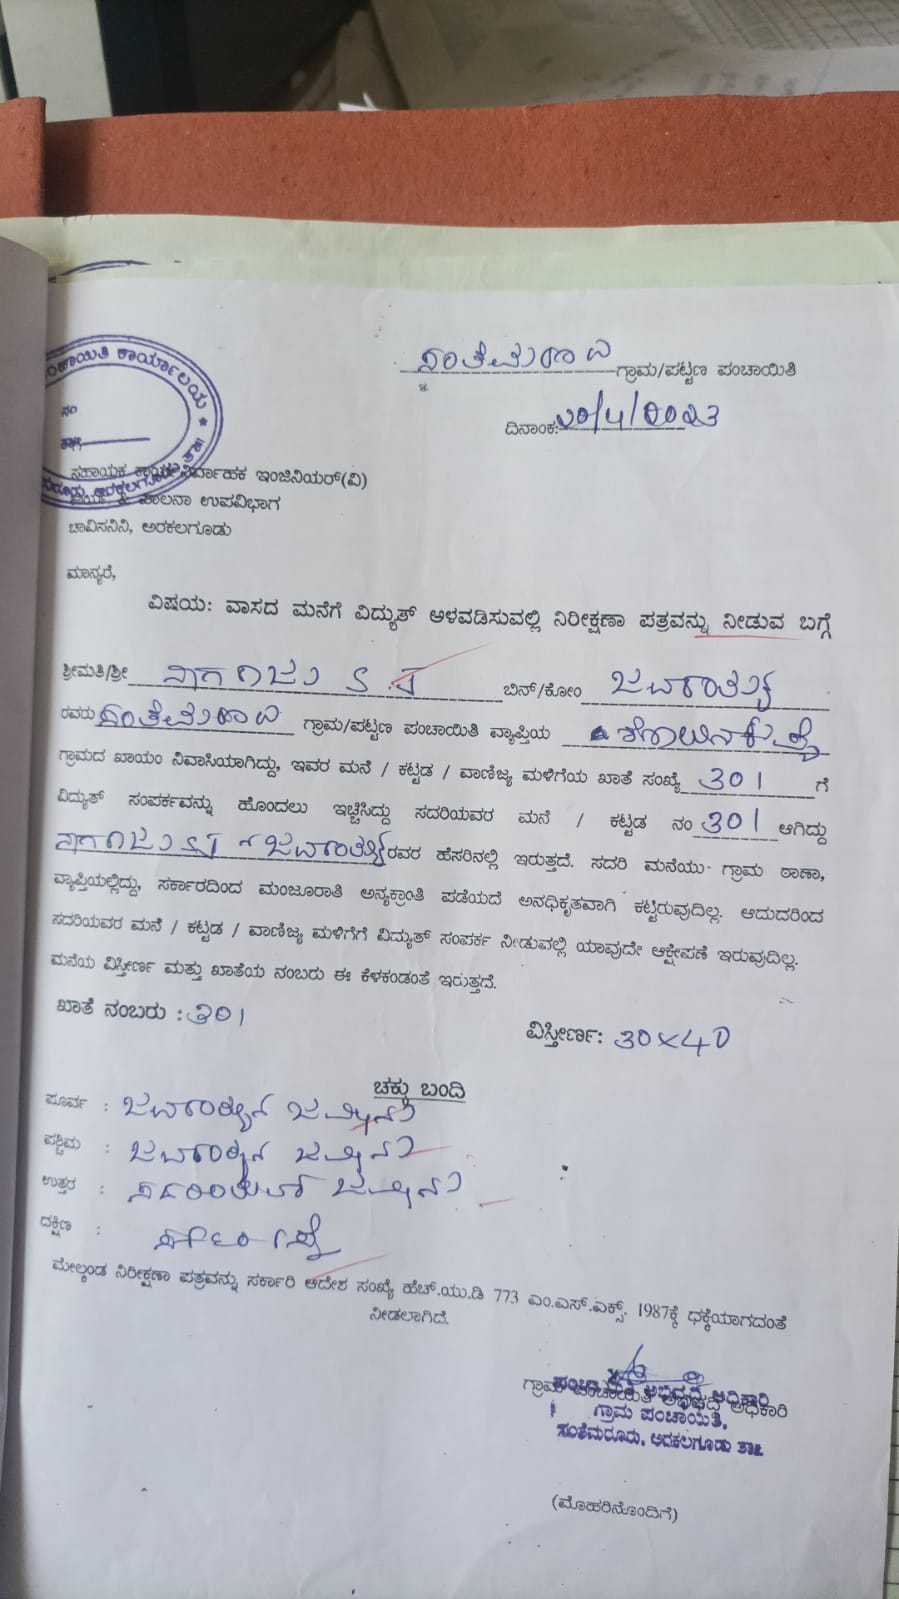 ಸಂತೆಮರೂರು ಗ್ರಾಮ/ಪಟ್ಟಣ ಪಂಚಾಯಿತಿ
ದಿನಾಂಕ: 20/4/2023
ಪಂಚಾಯಿತಿ ಕಾರ್ಯಾಲಯ
ನಂ
ಸಹಾಯಕ ಕಾರ್ಯನಿರ್ವಾಹಕ ಇಂಜಿನಿಯರ್(ವಿ)
ಕಾರ್ಯ & ಪಾಲನಾ ಉಪವಿಭಾಗ
ಚಾವಿಸನಿನಿ, ಅರಕಲಗೂಡು
ಮಾನ್ಯರೆ,
ವಿಷಯ: ವಾಸದ ಮನೆಗೆ ವಿದ್ಯುತ್ ಅಳವಡಿಸುವಲ್ಲಿ ನಿರೀಕ್ಷಣಾ ಪತ್ರವನ್ನು ನೀಡುವ ಬಗ್ಗೆ
ಶ್ರೀಮತಿ/ಶ್ರೀ ನಾಗರಾಜು S.J ಬಿನ್/ಕೋಂ ಜವರಾಶೆಟ್ಟಿ
ರವರು ಸಂತೆಮರೂರು ಗ್ರಾಮ/ಪಟ್ಟಣ ಪಂಚಾಯಿತಿ ವ್ಯಾಪ್ತಿಯ
ಗ್ರಾಮದ ಖಾಯಂ ನಿವಾಸಿಯಾಗಿದ್ದು, ಇವರ ಮನೆ / ಕಟ್ಟಡ / ವಾಣಿಜ್ಯ ಮಳಿಗೆಯ ಖಾತೆ ಸಂಖ್ಯೆ 301 ಗೆ
ವಿದ್ಯುತ್ ಸಂಪರ್ಕವನ್ನು ಹೊಂದಲು ಇಚ್ಚಿಸಿದ್ದು ಸದರಿಯವರ ಮನೆ / ಕಟ್ಟಡ ನಂ 301 ಆಗಿದ್ದು
ನಾಗರಾಜು ರವರ ಹೆಸರಿನಲ್ಲಿ ಇರುತ್ತದೆ. ಸದರಿ ಮನೆಯು ಗ್ರಾಮ ಠಾಣಾ,
ವ್ಯಾಪ್ತಿಯಲ್ಲಿದ್ದು, ಸರ್ಕಾರದಿಂದ ಮಂಜೂರಾತಿ ಅನ್ಯಕ್ರಾಂತಿ ಪಡೆಯದೆ ಅನಧಿಕೃತವಾಗಿ ಕಟ್ಟಿರುವುದಿಲ್ಲ. ಆದುದರಿಂದ
ಸದರಿಯವರ ಮನೆ / ಕಟ್ಟಡ / ವಾಣಿಜ್ಯ ಮಳಿಗೆಗೆ ವಿದ್ಯುತ್ ಸಂಪರ್ಕ ನೀಡುವಲ್ಲಿ ಯಾವುದೇ ಆಕ್ಷೇಪಣೆ ಇರುವುದಿಲ್ಲ.
ಮನೆಯ ವಿಸ್ತೀರ್ಣ ಮತ್ತು ಖಾತೆಯ ನಂಬರು ಈ ಕೆಳಕಂಡಂತೆ ಇರುತ್ತದೆ.
ಖಾತೆ ನಂಬರು : 301
ವಿಸ್ತೀರ್ಣ: 30x40
ಚಕ್ಕು ಬಂದಿ
ಪೂರ್ವ : ಜಮೀನು
ಪಶ್ಚಿಮ : ಜಮೀನು
ಉತ್ತರ : ಜಮೀನು
ದಕ್ಷಿಣ :
ಮೇಲ್ಕಂಡ ನಿರೀಕ್ಷಣಾ ಪತ್ರವನ್ನು ಸರ್ಕಾರಿ ಆದೇಶ ಸಂಖ್ಯೆ ಹೆಚ್.ಯು.ಡಿ 773 ಎಂ.ಎಸ್.ಎಕ್ಸ್. 1987ಕ್ಕೆ ಧಕ್ಕೆಯಾಗದಂತೆ
ನೀಡಲಾಗಿದೆ.
ಗ್ರಾಮ ಪಂಚಾಯಿತಿ ಅಭಿವೃದ್ಧಿ ಅಧಿಕಾರಿ
ಪಂಚಾಯಿತಿ ಅಭಿವೃದ್ಧಿ ಅಧಿಕಾರಿ
ಗ್ರಾಮ ಪಂಚಾಯಿತಿ,
ಸಂತೆಮರೂರು, ಅರಕಲಗೂಡು ತಾ||
(ಮೊಹರಿನೊಂದಿಗೆ)